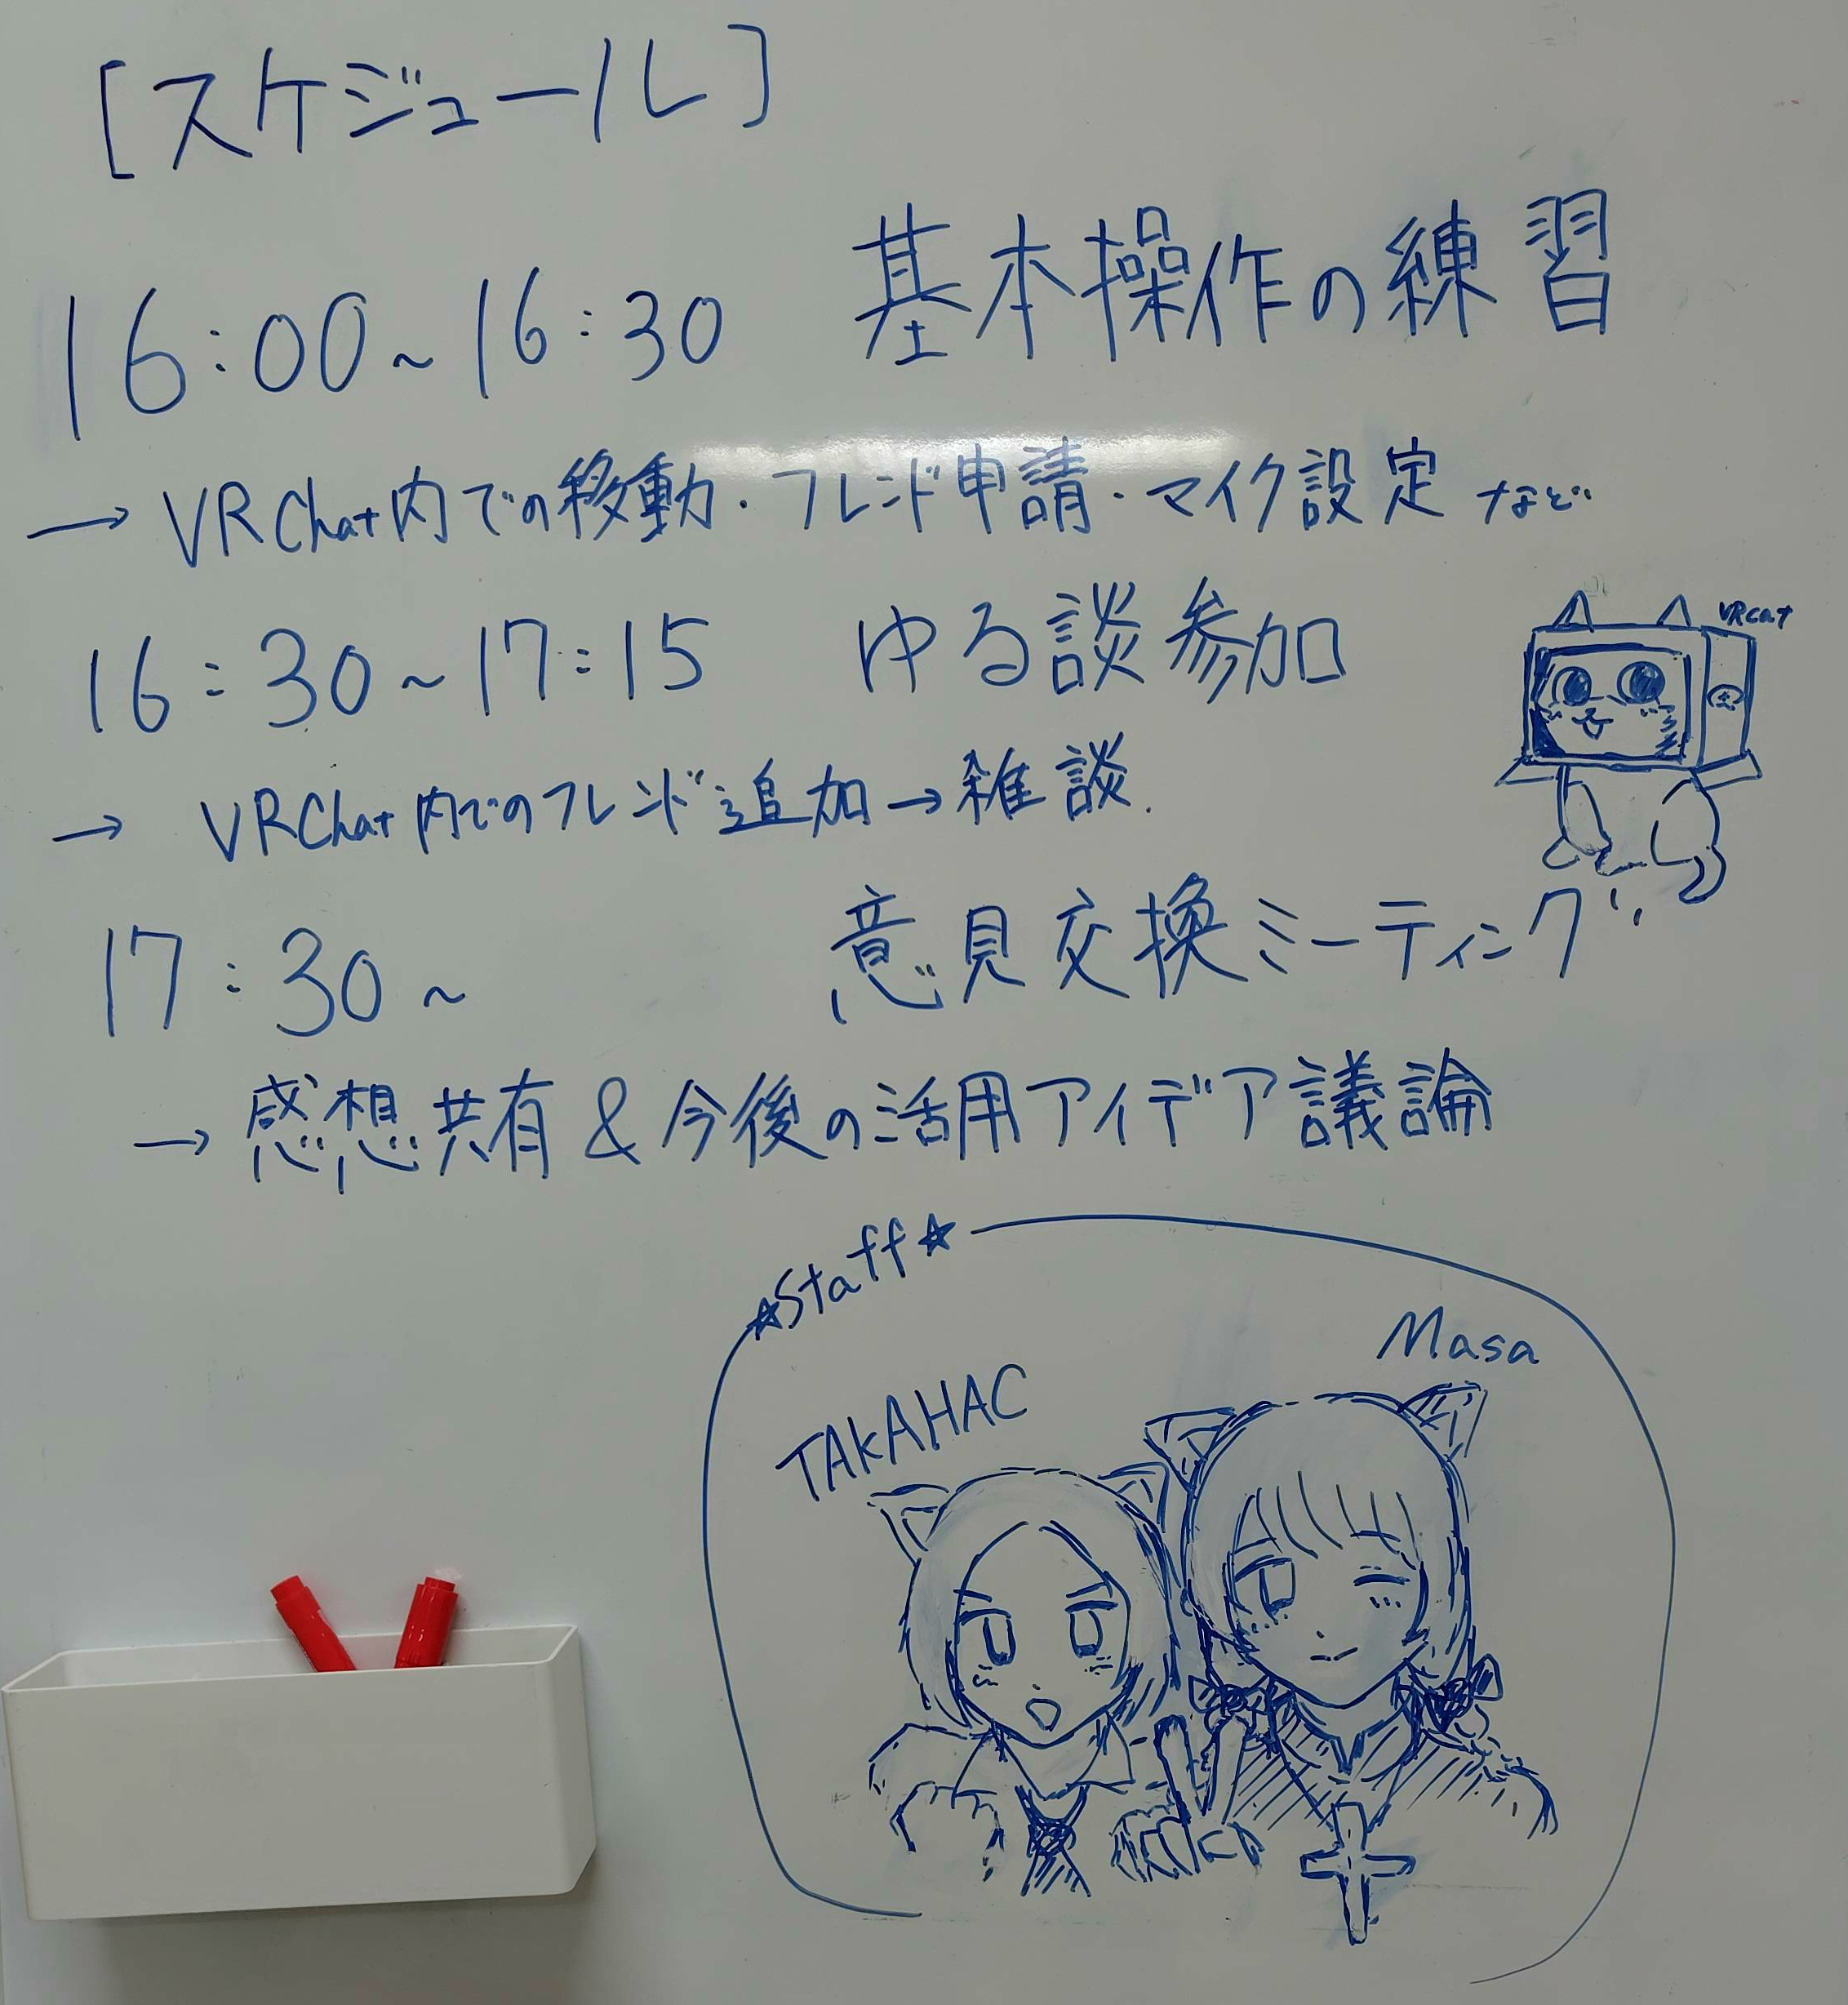 [スケジュール]
16:00~16:30 基本操作の練習
→VRChat内での移動・フレンド申請・マイク設定 など
16:30~17:15 ゆる談参加
→VRChat内でのフレンド追加→雑談.
VRcat
17:30~ 意見交換ミーティング
→感想共有&今後の活用アイデア議論
☆Staff☆
Masa
TAKAHAC